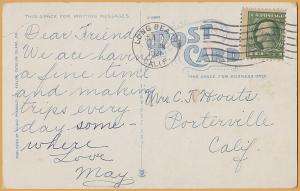 THIS SPACE FOR WRITING MESSAGES
POST CARD
THIS SPACE FOR ADDRESS ONLY
LONG BEACH
CALIF.
Dear Friend
We are having
a fine time
and making
trips every
day some-
where
Love
May.
Mrs C. R. Houts
Porterville
Calif.